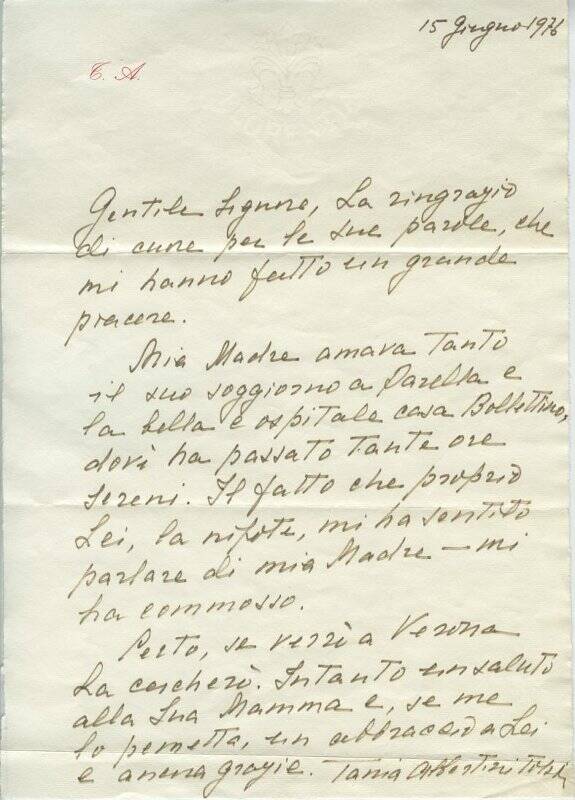 15 Giugno 1976
T. A.
Gentile Signora, La ringrazio
di cuore per le sue parole, che
mi hanno fatto un grande
piacere.
Mia Madre amava tanto
il suo soggiorno a Parella e
la bella e ospitale casa Bollettino,
dovè ha passato tante ore
sereni. Il fatto che proprio
Lei, la nipote, mi ha sentito
parlare di mia Madre – mi
ha commosso.
Certo, se verrò a Verona
La cercherò. Intanto un saluto
alla Sua Mamma e, se me
lo permetta, un abbraccio a Lei
e ancora grazie. Tania Albertini